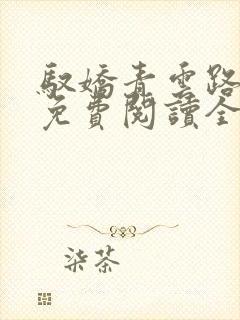 馭嬌青雲路
免費閱讀全
柒茶